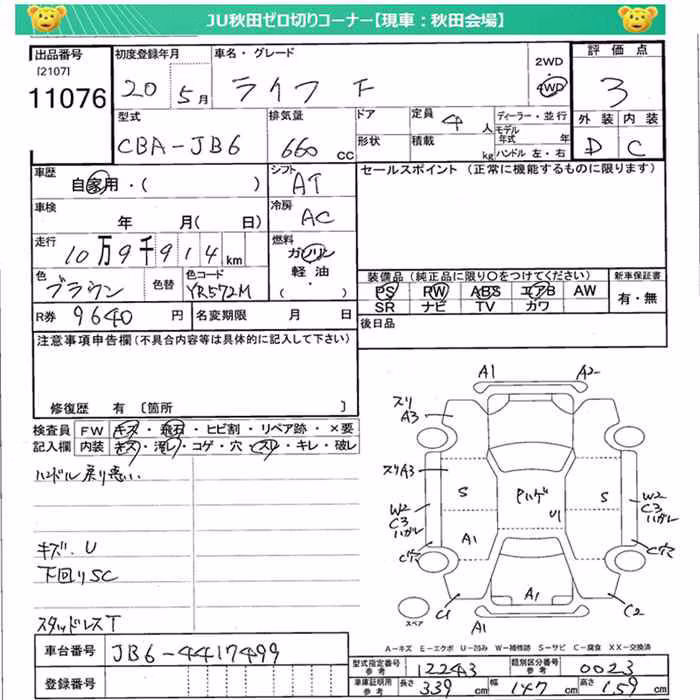 JU秋田ゼロ切りコーナー【現車：秋田会場】
出品番号 初度登録年月 車名・グレード 2WD 評価点
[2107] 11076 20 5月 ライフ F 4WD 3
型式 排気量 ドア 定員 4人 ディーラー・並行 外装 内装
CBA-JB6 660 CC 形状 積載 kg モデル年式 年 D C
ハンドル 左・右
車歴 自家用・( ) シフト AT セールスポイント (正常に機能するものに限ります)
車検 年 月( 日) 冷房 AC
走行 10万9千914km 燃料 ガソリン 軽油 ( ・ )
色 ブラウン 色替 色コード YR572M 装備品 (純正品に限り○をつけてください) 新車保証書
PS PW ABS エアB AW 有・無
SR ナビ TV カワ
R券 9640円 名変期限 月 日 後日品
注意事項申告欄 (不具合内容等は具体的に記入して下さい)
修復歴 有 [箇所 ]
検査員 FW キズ・飛石・ヒビ割・リペア跡・×要
記入欄 内装 キズ・汚レ・コゲ・穴・スレ・キレ・破レ
ハンドル戻り悪い.
キズ、U
下回りSC
スタッドレスT
A1 A2
スリ A3
スリA3
S Pハゲ S
W2 C3 ハガレ U1 W2 C3 ハガレ
A1
C穴 C穴
A1
C1 C2
スペア A1
A－キズ E－エクボ U－凹み W－補修跡 S－サビ C－腐食 XX－交換済
車台番号 JB6-4417499
登録番号
型式指定番号 参考 12243 類別区分番号 参考 0023
車庫証明用 参考 長さ 339cm 幅 147cm 高さ 159cm